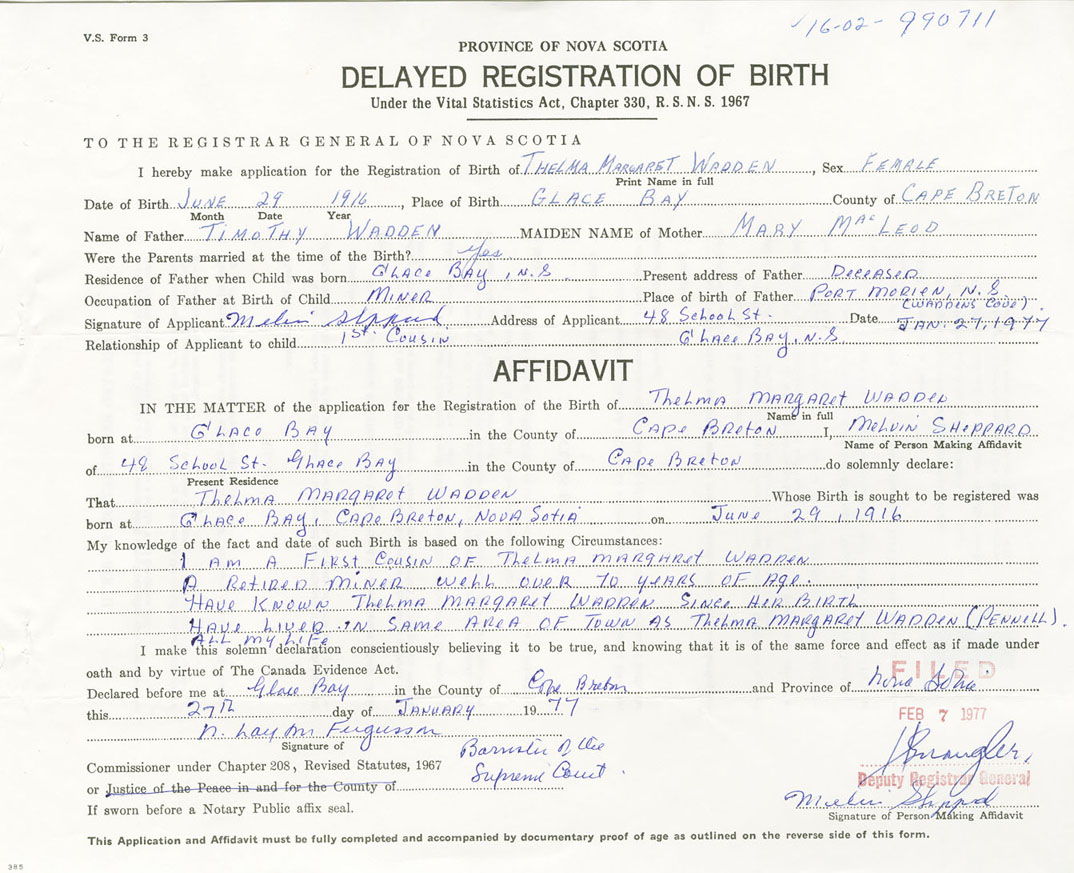 16-02- 990711
V.S. Form 3
PROVINCE OF NOVA SCOTIA
DELAYED REGISTRATION OF BIRTH
Under the Vital Statistics Act, Chapter 330, R. S. N. S. 1967
TO THE REGISTRAR GENERAL OF NOVA SCOTIA
I hereby make application for the Registration of Birth of THELMA MARGARET WADDEN, Sex FEMALE
Print Name in full
Date of Birth JUNE 29 1916, Place of Birth GLACE BAY County of CAPE BRETON
Month Date Year
Name of Father TIMOTHY WADDEN MAIDEN NAME of Mother MARY MacLEOD
Were the Parents married at the time of the Birth? Yes
Residence of Father when Child was born GLACE BAY, N.S Present address of Father DECEASED
Occupation of Father at Birth of Child MINER Place of birth of Father PORT MORIEN, N.S
(WADDINS COVE)
Signature of Applicant Melvin Sheppard Address of Applicant 48 School St. Date JAN. 27, 1977
Relationship of Applicant to child 1st. COUSIN GLACE BAY, N.S.
AFFIDAVIT
IN THE MATTER of the application for the Registration of the Birth of THELMA MARGARET WADDEN
Name in full
born at GLACE BAY in the County of CAPE BRETON I, MELVIN SHEPPARD
Name of Person Making Affidavit
of 48 SCHOOL ST. GLACE BAY in the County of CAPE BRETON do solemnly declare:
Present Residence
That THELMA MARGARET WADDEN Whose Birth is sought to be registered was
born at GLACE BAY, CAPE BRETON, NOVA SOTIA on JUNE 29, 1916
My knowledge of the fact and date of such Birth is based on the following Circumstances:
I AM A FIRST COUSIN OF THELMA MARGARET WADDEN
A RETIRED MINER WELL OVER 70 YEARS OF AGE.
HAVE KNOWN THELMA MARGARET WADDEN SINCE HER BIRTH
HAVE LIVED IN SAME AREA OF TOWN AS THELMA MARGARET WADDEN (PENNILL).
ALL MY LIFE
I make this solemn declaration conscientiously believing it to be true, and knowing that it is of the same force and effect as if made under
oath and by virtue of The Canada Evidence Act.
FILED
Declared before me at Glace Bay in the County of Cape Breton and Province of Nova Scotia
this 27th day of JANUARY 1977
FEB 7 1977
N. Layton Fergusson
Signature of
Barrister of the
Supreme Court.
Commissioner under Chapter 208, Revised Statutes, 1967
or Justice of the Peace in and for the County of
Deputy Registrar General
Melvin Sheppard
If sworn before a Notary Public affix seal.
Signature of Person Making Affidavit
This Application and Affidavit must be fully completed and accompanied by documentary proof of age as outlined on the reverse side of this form.
385